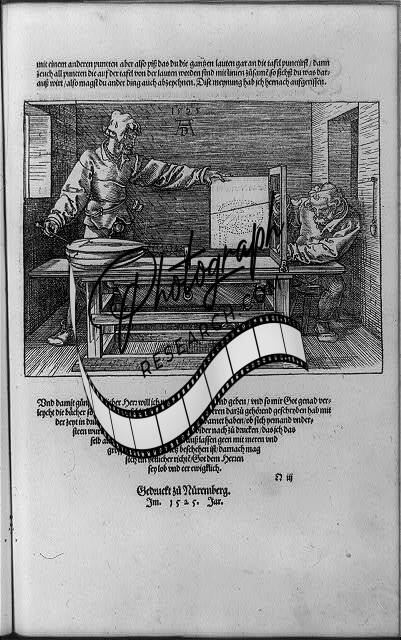 mit einem anderen puncten aber also piß das du die gantzen lauten gar an die tafel punctirst / dann
zeuch all puncten die auf der tafel von der lauten worden sind mit linien zůsame / so sichst du was dar-
auß wirt / also magst du ander ding auch abzeychnen. Dise meynung hab ich hernach aufgerissen.
1525
AD
Photograph
RESEARCH.COM
Vnd damit günstlicher Herr will ich meinem schreyben end geben / vnd so mir Got genad ver-
leycht die bücher so
geren darzů gehörend geschryben hab mit
der zeyt in druck
warnet haben / ob sich yemand vnder-
steen wurd
wider nach zů drucken / das ich das
selb auch
auß lassen geen mit meren vnd
beschehen ist / darnach mag
sich ein yetlicher richten / Got dem Herren
sey lob vnd eer ewigklich.
N iij
Gedruckt zů Nürenberg.
Im. 1525. Jar.